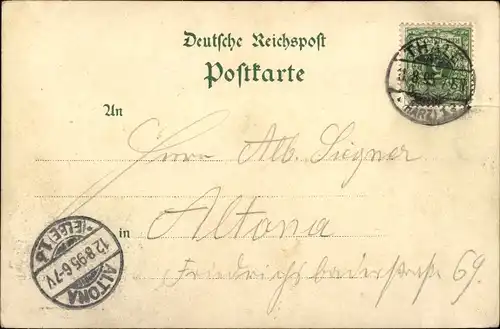 Deutsche Reichspost
Postkarte
THALE
8 95
(HARZ)
An
Herrn Alb. Siegner
in Altona
Friedrichsbaderstraße 69.
ALTONA
12.8.95.6-7V.
(ELBE) 1.